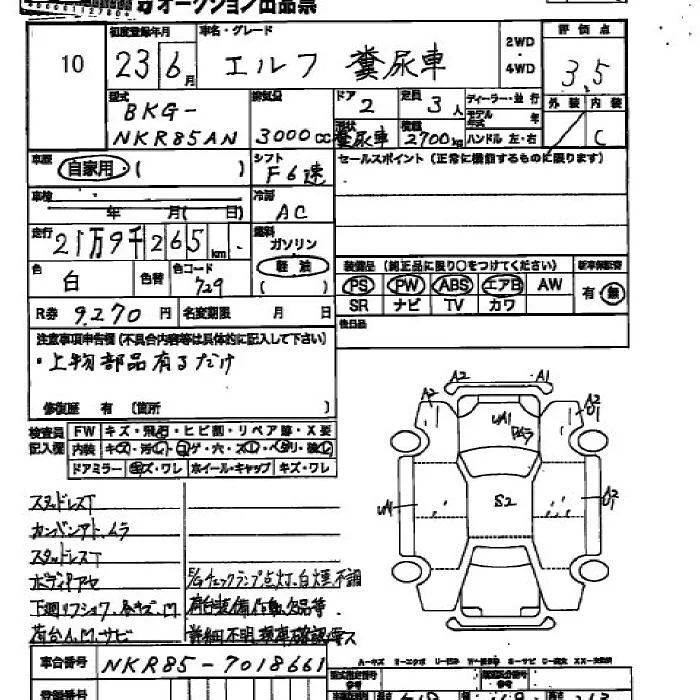 オークション出品票
10
初度登録年月
23 6月
車名・グレード
エルフ 糞尿車
2WD
4WD
評価点
3.5
外装 内装
C
型式
BKG-
NKR85AN
排気量
3000cc
ドア
2
定員
3人
形状
糞尿車
積載
2700kg
ディーラー・並行
モデル年式 年
ハンドル 左・右
車歴
自家用 ( )
シフト
F6速
セールスポイント (正常に機能するものに限ります)
車検
年 月( 日)
冷房
AC
走行
21万9千265km
燃料
ガソリン
軽油
( )
色
白
色替
色コード
729
装備品 (純正品に限り〇をつけてください)
新車保証書
PS PW ABS エアB AW
SR ナビ TV カワ
有・無
R券 9270円
名変期限 月 日
後日品
注意事項申告欄 (不具合内容等は具体的に記入して下さい)
・上物部品有るだけ
修復歴 有 (箇所 )
検査員記入欄
FW キズ・飛石・ヒビ割・リペア跡・X要
内装 キズ・汚レ・コゲ・穴・スレ・ヘタリ・破レ
ドアミラー キズ・ワレ ホイール・キャップ キズ・ワレ
スタッドレスT
カンバンアト、ムラ
スタッドレスT
ボディアセ
E/gチェックランプ点灯、白煙不調
荷台装備作動、欠品等
荷台A、M、サビ
詳細不明、現車確認要ス
A2 A1
A2
UA1
S2
UA1
車台番号
NKR85-7018661
登録番号
A-キズ U-凹み
型式指定番号
類別区分番号
参考